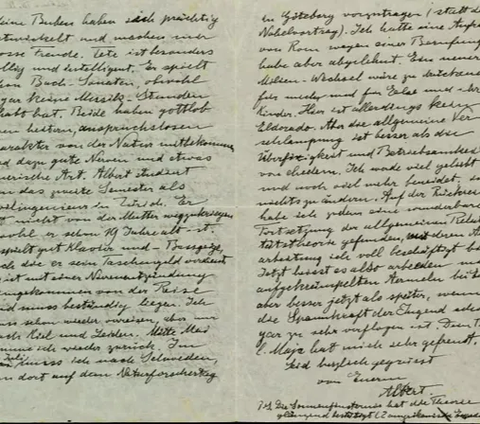 eine Buben haben sich prächtig
entwickelt und machen mir
osse Freude. Tete ist besonders
llig und intelligent. Er spielt
on Bach-Sonaten, obwohl
gar keine Musik-Stunden
habt hat. Beide haben gottlob
en heitern, anspruchslosen
arakter von der Natur mitbekommen
d dazu gute Nerven und etwas
nerische Art. Albert studiert
n das zweite Semester als
ilingenieur in Zürich. Er
nicht von der Mutter
wohl er schon 19 Jahre alt ist.
spielt gut Klavier und
ch die er sein Taschengeld verdient
ist mit einer Nierenentzündung
ngekommen von der Reise
nd muss beständig liegen. Ich
schon wieder verreisen,
ch Kiel und Leiden. Mitte Mai
ich wieder zurück. Im
Juli muss ich nach Schweden,
n dort auf dem Naturforschertag
in Göteborg vorzutragen (statt de
Nobelvortrag). Ich hatte eine Anfra
von Rom wegen einer Berufung
habe aber abgelehnt. Ein neuer
Milieu-Wechsel wäre zu drückend
für mich und für Else und ihre
Kinder. Hier ist allerdings kein
Eldorado. Aber die allgemeine Ver
schlampung ist besser als die
und Betriebsamkeit
von ehedem. Ich werde viel geliebt
und noch viel mehr beneidet,
nichts zu ändern. Auf der Rückreise
habe ich zudem eine wunderbare
Fortsetzung der allgemeinen Rela
tivitätstheorie gefunden, mit deren A
arbeitung ich voll beschäftigt b
Jetzt heisst es also arbeiten mit
aufgekrempelten Aermeln
aber besser jetzt als später, wenn
die Spannkraft der Jugend
gar zu sehr verflogen ist. Dein
l. Maja hat mich sehr gefreut.
Seid herzlich gegrüsst
von Euerm
Albert.
Die Sonnenfinsternis hat die Theorie
glänzend bestätigt